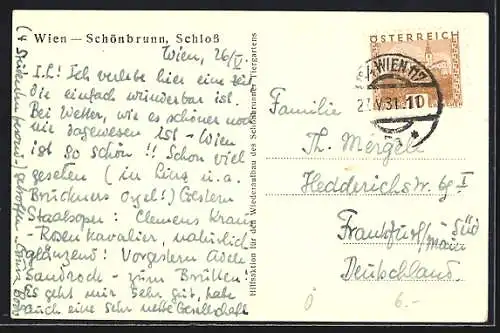 Wien — Schönbrunn, Schloß
Wien, 26/V.
I. L.! Ich verlebe hier eine Zeit
die einfach wunderbar ist.
Bei Wetter, wie es schöner noch
nie dagewesen ist - Wien
ist so schön!! Schon viel
gesehen (in Linz u. a.
Bruckners Orgel!) Gestern
Staatsoper: Clemens Krauss
- Rosenkavalier, natürlich
glänzend! Vorgestern Adele
Sandrock - zum Brüllen!
Es geht mir sehr gut, habe
auch eine sehr nette Gesellschaft
(4 Studenten
getroffen
Hilfsaktion für den Wiederaufbau des Schönbrunner Tiergartens
ÖSTERREICH
WIEN
V.31
Familie
Th. Mergell
Hedderichstr. 69 I
Frankfurt/Main
Süd
Deutschland.
6.-